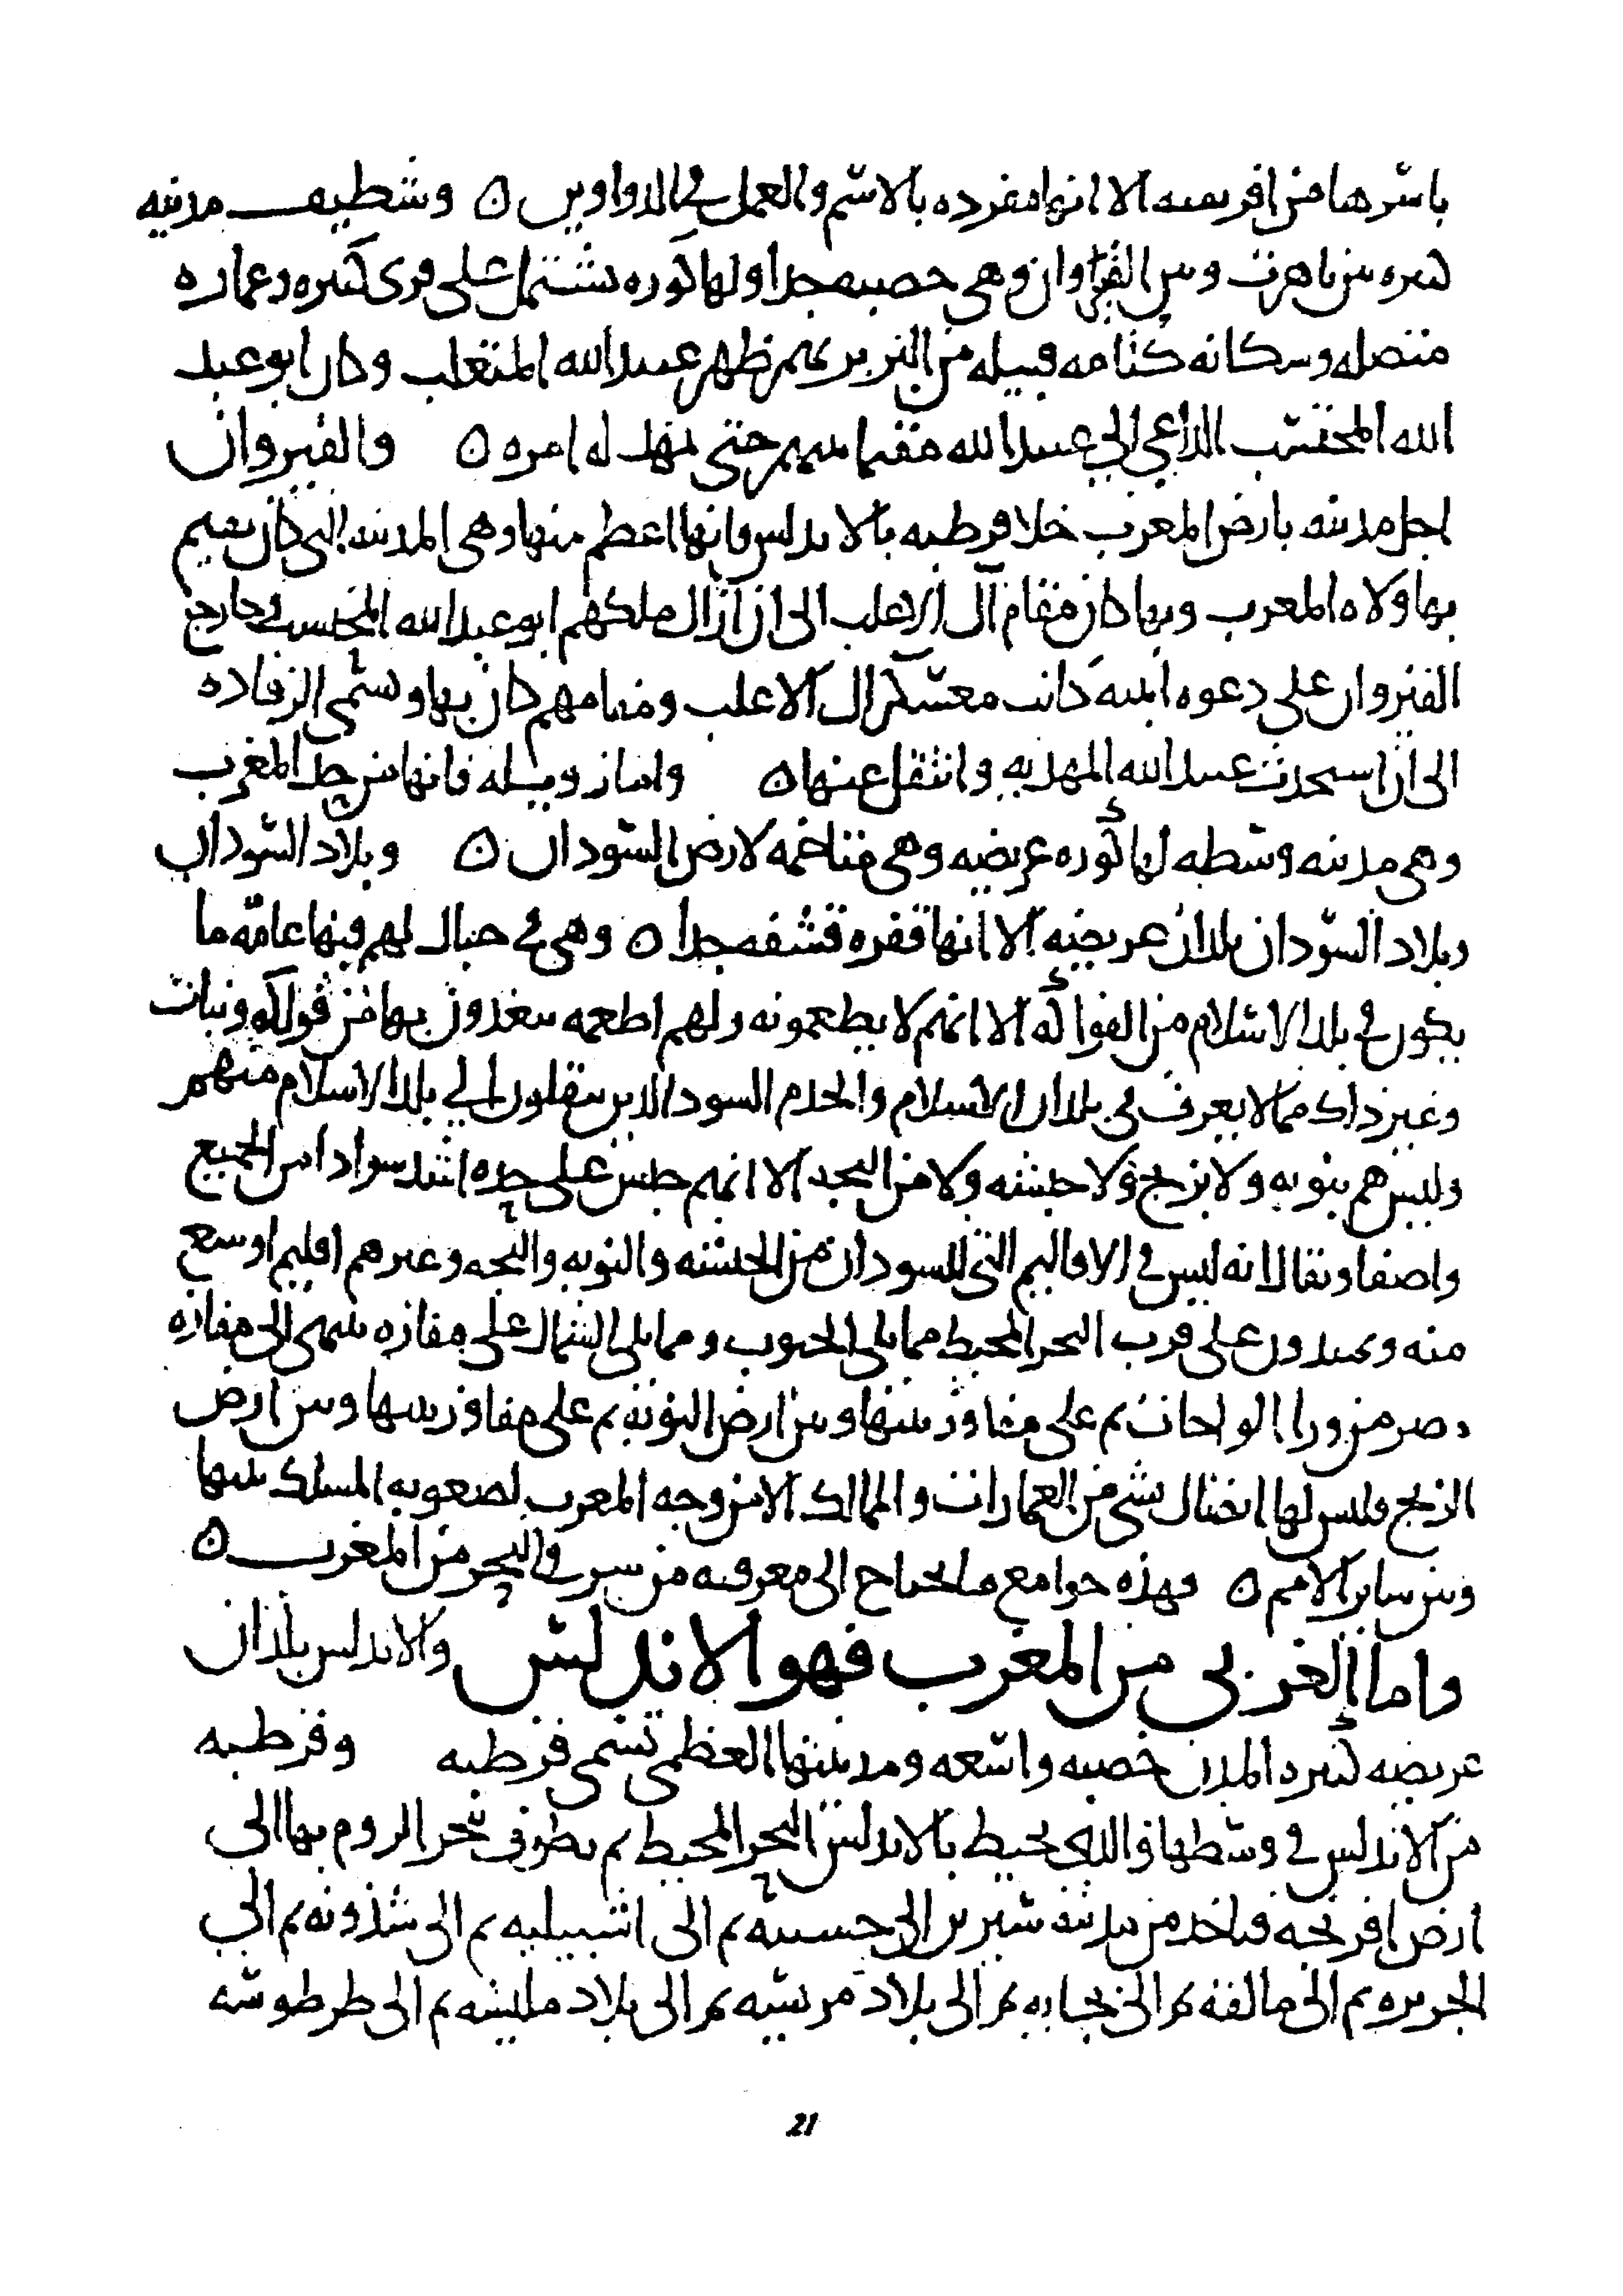 باسرها من افريقيه الا انها مفرده بالاسم والعمل في الدواوين ۝ وسطيف مدينه
كبيره بين تاهرت وبين القيروان وهي خصبه جدا ولها كوره تشتمل على قرى كثيره وعماره
متصله وسكانه كتامه قبيله من البربر بهم ظهر عبيد الله المتغلب وكان ابو عبد
الله المحتسب الداعي الي عبيد الله مقيما بينهم حتى تمهد له امره ۝ والقيروان
اجل مدينه بارض المغرب خلا قرطبه بالاندلس فانها اعظم منها وهي المدينه التي كان يقيم
بها ولاه المغرب وبها كان مقام آل الاغلب الى ان ازال ملكهم ابو عبد الله المحتسب في خارج
القيروان على دعوه ابنيه كانت معسكر آل الاغلب ومقامهم كان بها وتسمى الرقاده
الى ان استحدث عبيد الله المهديه وانتقل عنها ۝ واما زويله فانها من حد المغرب
وهي مدينه وسطه لها كوره عريضه وهي متاخمه لارض السودان ۝ وبلاد السودان
وبلاد السودان بلدان عريضه الا انها قفره قشفه جدا ۝ وهي في جبال لهم فيها عامه ما
يكون في بلد الاسلام من الفواكه الا انهم لا يطعمونه ولهم اطعمه يتغذون بها من فواكه ونبات
وغير ذلك مما لا يعرف في بلدان الاسلام والخدم السود الذين ينقلون الي بلد الاسلام منهم
وليس هم بنوبه ولا بزنج ولا حبشه ولا من البجه الا انهم جنس على حده اشد سوادا من الجميع
واصفا ويقال انه ليس في الاقاليم التي للسودان من الحبشه والنوبه والبجه وغيرهم اقليم اوسع
منه ويمتدون على قرب البحر المحيط مما يلي الجنوب ومما يلي الشمال على مفازه تنتهي الى مفازه
مصر من ورا الواحات ثم على مفاوز بينها وبين ارض النوبه ثم على مفاوز بينها وبين ارض
الزنج وليس لها اتصال بشي من العمارات والممالك الا من وجه المغرب لصعوبه المسلك بينها
وبين ساير الامم ۝ فهذه جوامع ما يحتاج الى معرفته من شرقي البحر من المغرب ۝
واما الغربي من المغرب فهو الاندلس والاندلس بلدان
عريضه كثيره المدن خصبه واسعه ومدينتها العظمى تسمى قرطبه وقرطبه
من الاندلس في وسطها والذي يحيط بالاندلس البحر المحيط ثم يطوف بحر الروم بها الى
ارض افرنجه فياخذ من مدينه شنترين الي حسينه ثم الى اشبيليه ثم الى شذونه ثم الي
الجزيره ثم الى مالقه ثم الى بجانه ثم الى بلاد مرسيه ثم الى بلاد بلنسيه ثم الى طرطوشه
21